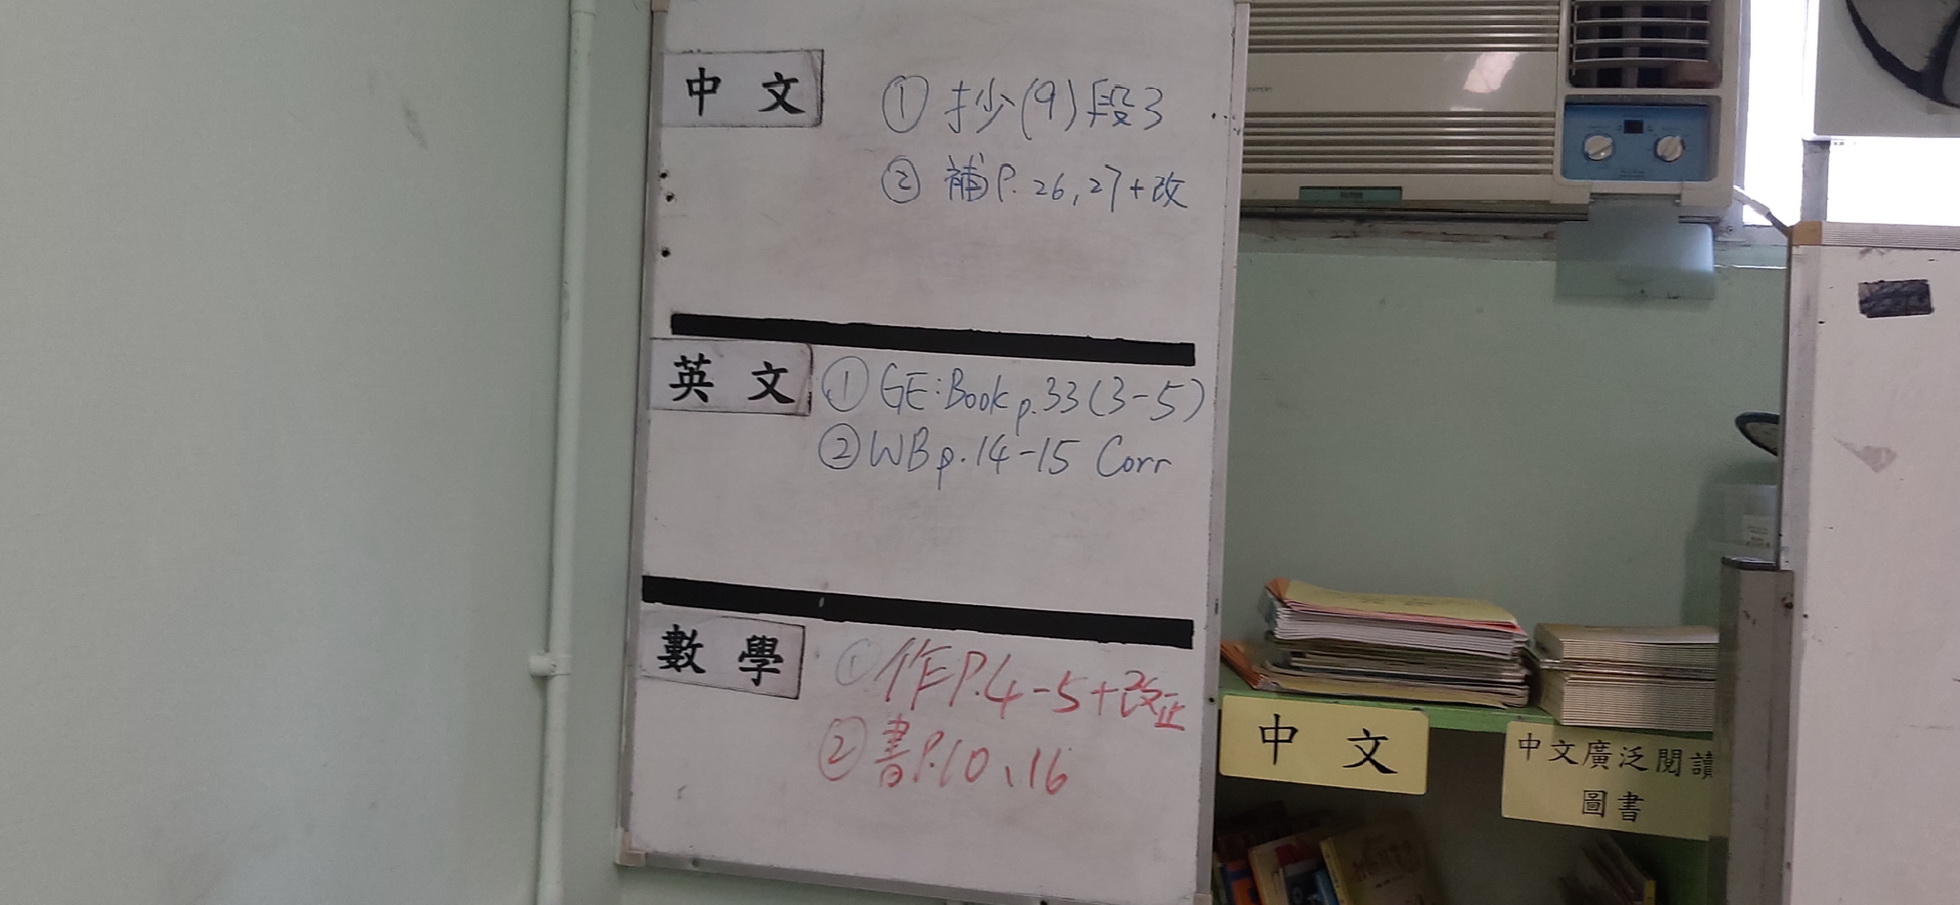 中文
① 抄(9)段3
② 補P.26,27+改
英文
① GE:Book p.33(3-5)
② WB p.14-15 Corr
數學
① 作P.4-5+改正
② 書P.10、16
中文
中文廣泛閱讀
圖書